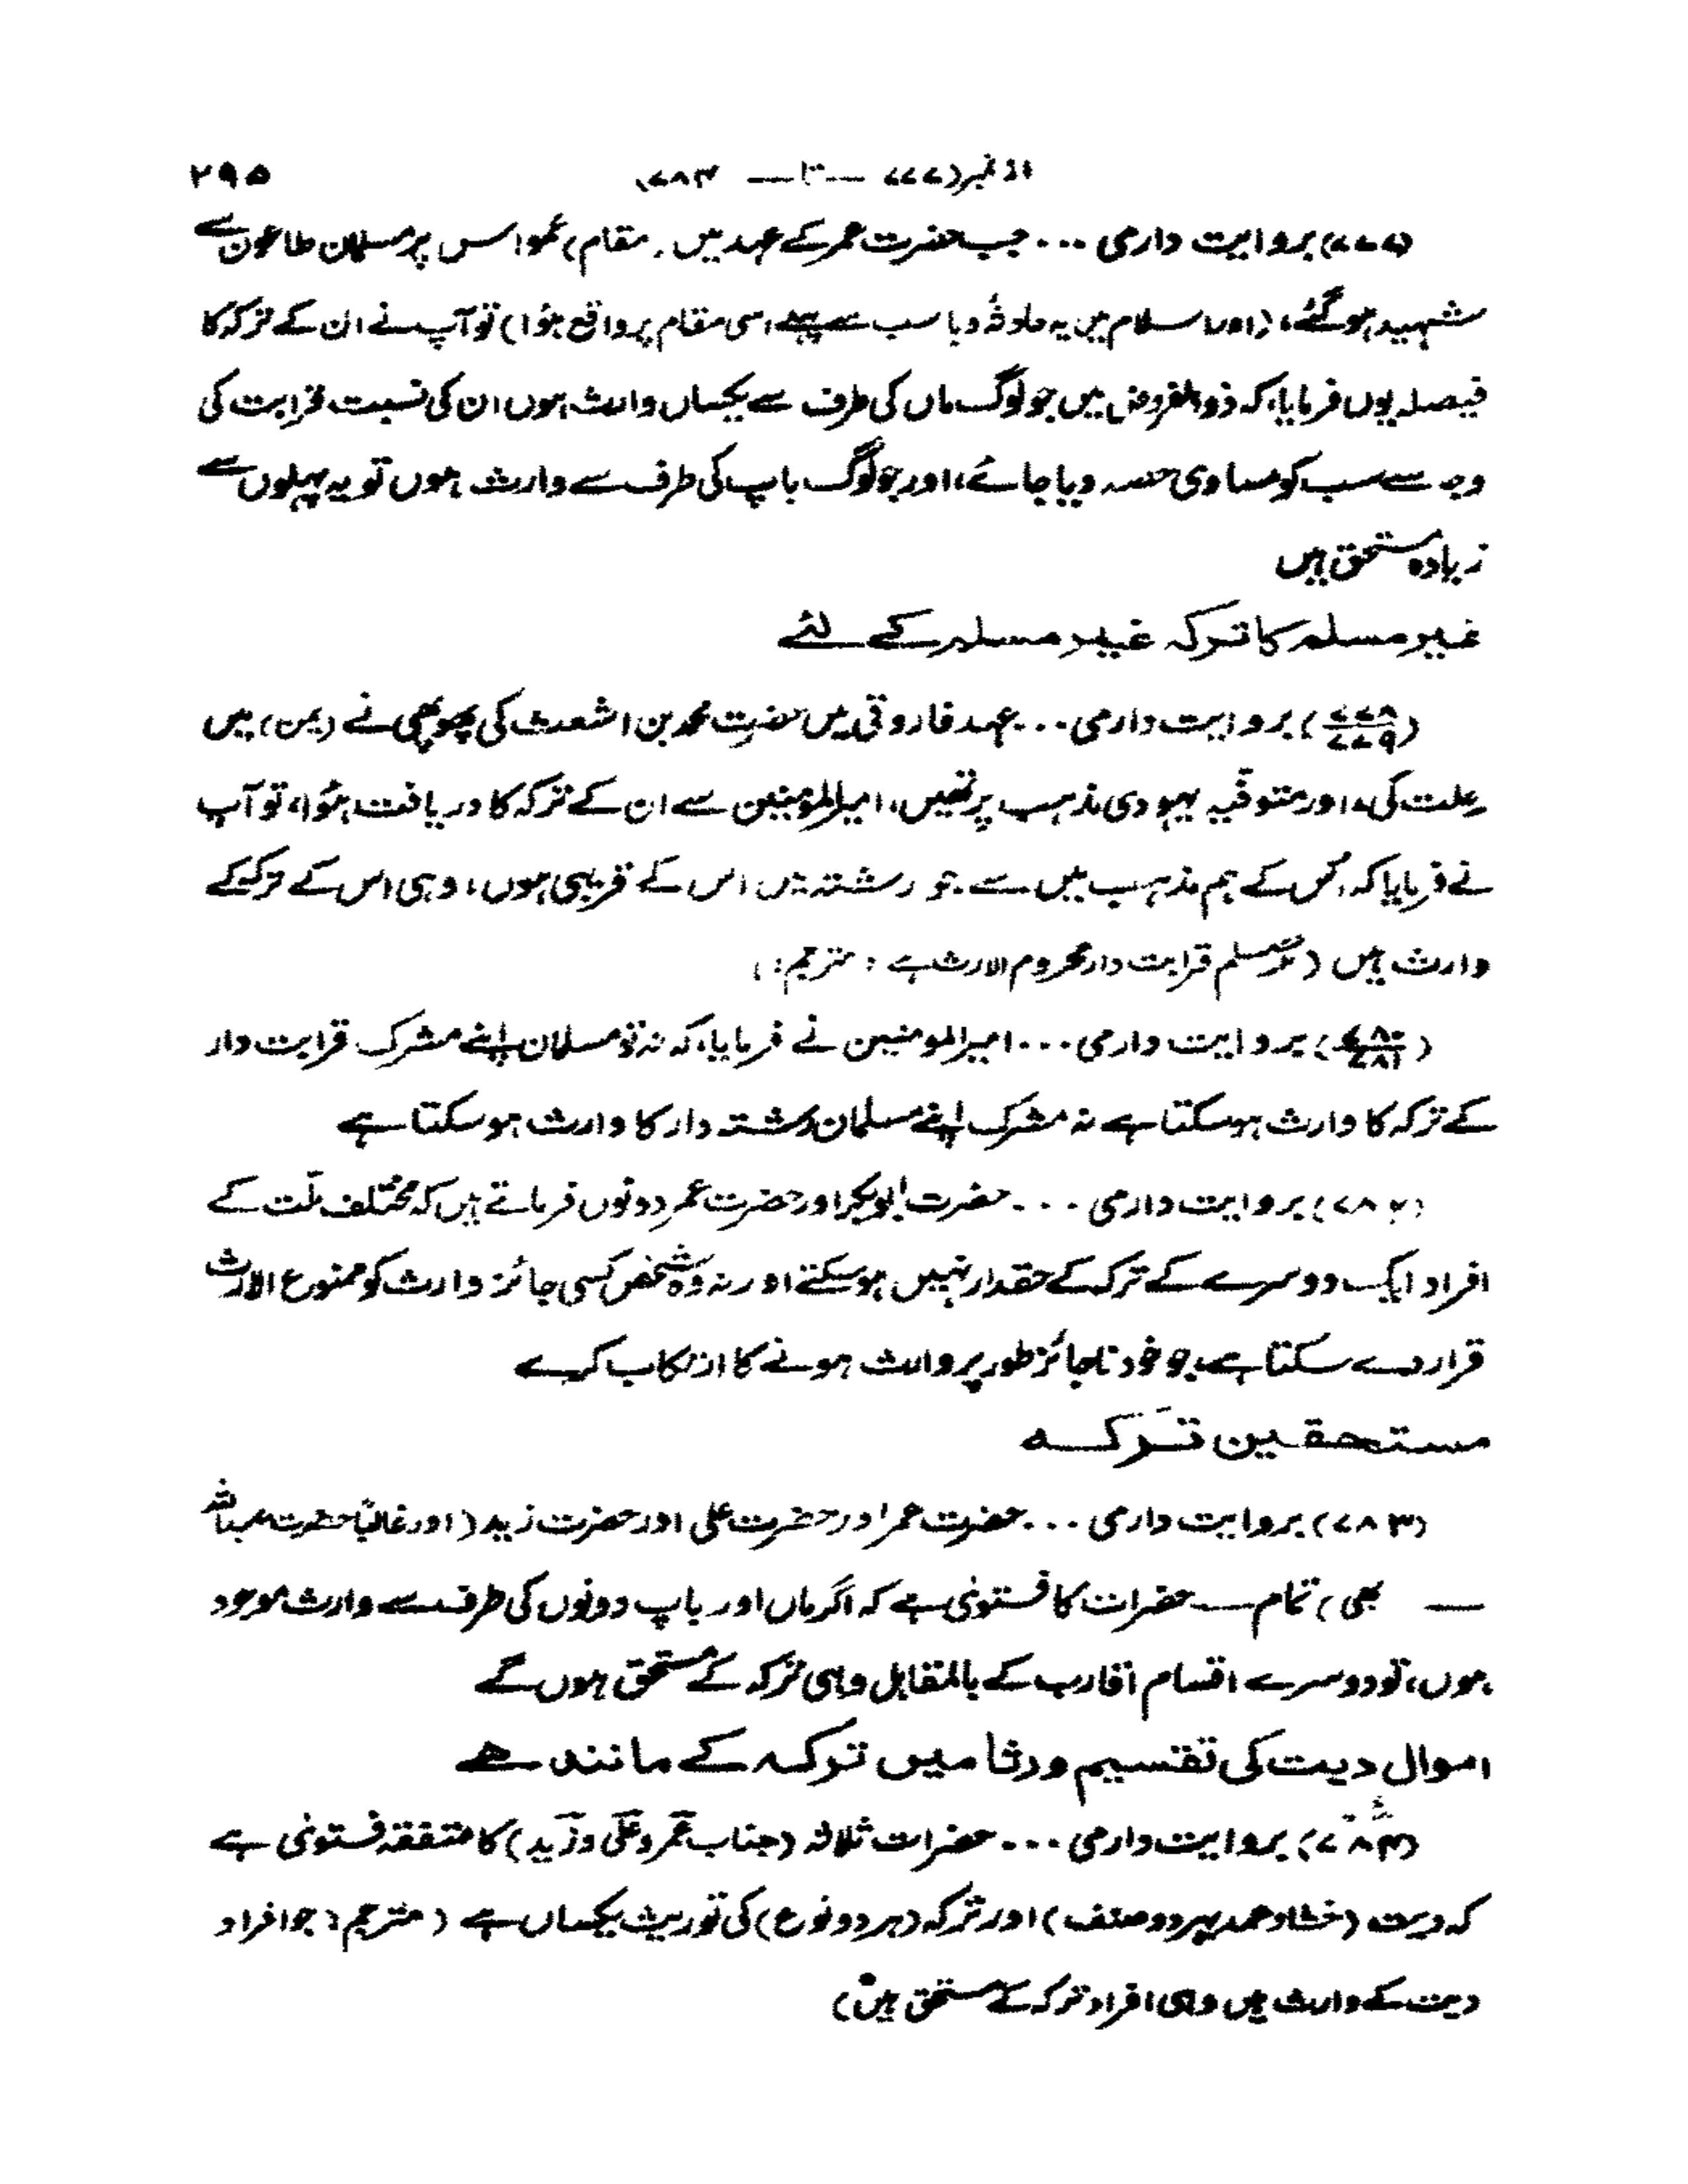 از نمبر (۷۷۷ — تا — ۷۸۴) ۲۹۵
(۷۷۷) بروایت دارمی ... جب حضرت عمر کے عہد میں (مقام) عمواس پر مسلمان طاعون سے
شہید ہو گئے، (اور اسلام میں یہ حادثۂ وبا سب سے پہلے اسی مقام پر واقع ہؤا) تو آپ نے ان کے ترکہ کا
فیصلہ یوں فرمایا، کہ ذو الفروض میں جو لوگ ماں کی طرف سے یکساں وارث ہوں ان کی نسبت قرابت کی
وجہ سے سب کو مساوی حصہ دیا جائے، اور جو لوگ باپ کی طرف سے وارث ہوں تو یہ پہلوں سے
زیادہ مستحق ہیں
غیر مسلم کا ترکہ غیر مسلم کے لئے
(۷۷۸/۷۷۹) بروایت دارمی ... عہد فاروقی میں حضرت محمد بن اشعث کی پھوپھی نے (یمن) میں
رحلت کی، اور متوفّیہ یہودی مذہب پر تھیں، امیرالمؤمنین سے ان کے ترکہ کا دریافت ہؤا، تو آپ
نے فرمایا کہ اس کے ہم مذہب میں سے جو رشتہ میں اس کے قریبی ہوں، وہی اس کے ترکے کے
وارث ہیں (مگر مسلم قرابت دار محروم الارث ہے : مترجم:)
(۷۸۰/۷۸۱) بروایت دارمی ... امیرالمومنین نے فرمایا، کہ نہ تو مسلمان اپنے مشرک قرابت دار
کے ترکہ کا وارث ہو سکتا ہے نہ مشرک اپنے مسلمان رشتہ دار کا وارث ہو سکتا ہے
(۷۸۲) بروایت دارمی ... حضرت ابوبکر اور حضرت عمر دونوں فرماتے ہیں کہ مختلف ملّت کے
افراد ایک دوسرے کے ترکہ کے حقدار نہیں ہو سکتے اور نہ وہ شخص کسی جائز وارث کو ممنوع الارث
قرار دے سکتا ہے جو خود ناجائز طور پر وارث ہونے کا ارتکاب کرے
مستحقین ترکہ
(۷۸۳) بروایت دارمی ... حضرت عمر اور حضرت علی اور حضرت زید (اور غالباً حضرت عبداللہ
— بھی) تمام — حضرات کا فتویٰ ہے کہ اگر ماں اور باپ دونوں کی طرف سے وارث موجود
ہوں، تو دوسرے اقسام اقارب کے بالمقابل وہی ترکہ کے مستحق ہوں گے
اموال دیت کی تقسیم ورثا میں ترکہ کے مانند ہے
(۷۸۴) بروایت دارمی ... حضرات ثلاثہ (جناب عمر و علی و زید) کا متفقہ فتویٰ ہے
کہ دیت (خطا و عمد ہر دو صنف) اور ترکہ (ہر دو نوع) کی توریث یکساں ہے (مترجم: جو افراد
دیت کے وارث ہیں وہی افراد ترکہ کے مستحق ہیں)